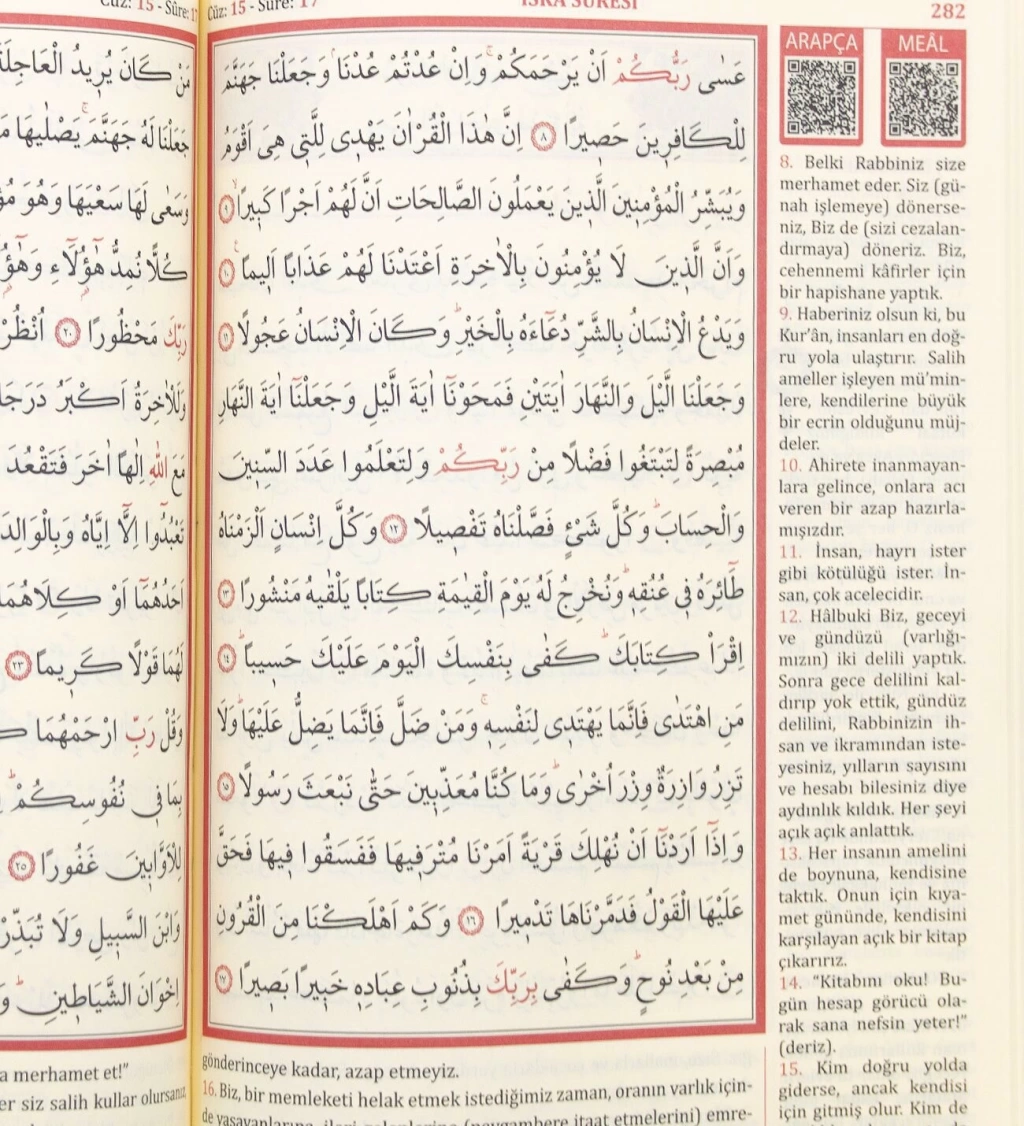 Cüz: 15 - Sûre: 17
İSRA SÛRESİ
282
عَسٰى رَبُّكُمْ اَنْ يَرْحَمَكُمْۚ وَاِنْ عُدْتُمْ عُدْنَاۢ وَجَعَلْنَا جَهَنَّمَ
لِلْكَافِر۪ينَ حَص۪يرًا ﴿٨﴾ اِنَّ هٰذَا الْقُرْاٰنَ يَهْد۪ي لِلَّت۪ي هِيَ اَقْوَمُ
وَيُبَشِّرُ الْمُؤْمِن۪ينَ الَّذ۪ينَ يَعْمَلُونَ الصَّالِحَاتِ اَنَّ لَهُمْ اَجْرًا كَب۪يرًاۙ ﴿٩﴾
وَاَنَّ الَّذ۪ينَ لَا يُؤْمِنُونَ بِالْاٰخِرَةِ اَعْتَدْنَا لَهُمْ عَذَابًا اَل۪يمًا۟ ﴿١٠﴾
وَيَدْعُ الْاِنْسَانُ بِالشَّرِّ دُعَٓاءَهُ بِالْخَيْرِۜ وَكَانَ الْاِنْسَانُ عَجُولًا ﴿١١﴾
وَجَعَلْنَا الَّيْلَ وَالنَّهَارَ اٰيَتَيْنِ فَمَحَوْنَٓا اٰيَةَ الَّيْلِ وَجَعَلْنَٓا اٰيَةَ النَّهَارِ
مُبْصِرَةً لِتَبْتَغُوا فَضْلًا مِنْ رَبِّكُمْ وَلِتَعْلَمُوا عَدَدَ السِّن۪ينَ
وَالْحِسَابَۜ وَكُلَّ شَيْءٍ فَصَّلْنَاهُ تَفْص۪يلًا ﴿١٢﴾ وَكُلَّ اِنْسَانٍ اَلْزَمْنَاهُ
طَٓائِرَهُ ف۪ي عُنُقِه۪ۜ وَنُخْرِجُ لَهُ يَوْمَ الْقِيٰمَةِ كِتَابًا يَلْقٰيهُ مَنْشُورًا ﴿١٣﴾
اِقْرَأْ كِتَابَكَۜ كَفٰى بِنَفْسِكَ الْيَوْمَ عَلَيْكَ حَس۪يبًاۜ ﴿١٤﴾
مَنِ اهْتَدٰى فَاِنَّمَا يَهْتَد۪ي لِنَفْسِه۪ۚ وَمَنْ ضَلَّ فَاِنَّمَا يَضِلُّ عَلَيْهَاۜ وَلَا
تَزِرُ وَازِرَةٌ وِزْرَ اُخْرٰىۜ وَمَا كُنَّا مُعَذِّب۪ينَ حَتّٰى نَبْعَثَ رَسُولًا ﴿١٥﴾
وَاِذَٓا اَرَدْنَٓا اَنْ نُهْلِكَ قَرْيَةً اَمَرْنَا مُتْرَف۪يهَا فَفَسَقُوا ف۪يهَا فَحَقَّ
عَلَيْهَا الْقَوْلُ فَدَمَّرْنَاهَا تَدْم۪يرًا ﴿١٦﴾ وَكَمْ اَهْلَكْنَا مِنَ الْقُرُونِ
مِنْ بَعْدِ نُوحٍۜ وَكَفٰى بِرَبِّكَ بِذُنُوبِ عِبَادِه۪ خَب۪يرًا بَص۪يرًا ﴿١٧﴾
ARAPÇA
MEÂL
8. Belki Rabbiniz size
merhamet eder. Siz (gü-
nah işlemeye) dönerse-
niz, Biz de (sizi cezalan-
dırmaya) döneriz. Biz,
cehennemi kâfirler için
bir hapishane yaptık.
9. Haberiniz olsun ki, bu
Kur’ân, insanları en doğ-
ru yola ulaştırır. Salih
ameller işleyen mü’min-
lere, kendilerine büyük
bir ecrin olduğunu müj-
deler.
10. Ahirete inanmayan-
lara gelince, onlara acı
veren bir azap hazırla-
mışızdır.
11. İnsan, hayrı ister
gibi kötülüğü ister. İn-
san, çok acelecidir.
12. Hâlbuki Biz, geceyi
ve gündüzü (varlığı-
mızın) iki delili yaptık.
Sonra gece delilini kal-
dırıp yok ettik, gündüz
delilini, Rabbinizin ih-
san ve ikramından iste-
yesiniz, yılların sayısını
ve hesabı bilesiniz diye
aydınlık kıldık. Her şeyi
açık açık anlattık.
13. Her insanın amelini
de boynuna, kendisine
taktık. Onun için kıya-
met gününde, kendisini
karşılayan açık bir kitap
çıkarırız.
14. “Kitabını oku! Bu-
gün hesap görücü ola-
rak sana nefsin yeter!”
(deriz).
15. Kim doğru yolda
giderse, ancak kendisi
için gitmiş olur. Kim de
gönderinceye kadar, azap etmeyiz.
16. Biz, bir memleketi helak etmek istediğimiz zaman, oranın varlık için-
de yaşayanlarına, (peygambere itaat etmelerini) emre-
Cüz: 15 - Sûre: 17
مَنْ كَانَ يُر۪يدُ الْعَاجِلَةَ
جَعَلْنَا لَهُ جَهَنَّمَۚ يَصْلٰيهَا
وَسَعٰى لَهَا سَعْيَهَا وَهُوَ
كُلًّا نُمِدُّ هٰٓؤُ۬لَٓاءِ
رَبِّكَ مَحْظُورًا ﴿٢٠﴾ اُنْظُرْ
وَلَلْاٰخِرَةُ اَكْبَرُ
مَعَ اللّٰهِ اِلٰهًا اٰخَرَ فَتَقْعُدَ
تَعْبُدُٓوا اِلَّٓا اِيَّاهُ
اَحَدُهُمَٓا اَوْ كِلَاهُمَا
لَهُمَا قَوْلًا كَر۪يمًا ﴿٢٣﴾
وَقُلْ رَبِّ ارْحَمْهُمَا
بِمَا ف۪ي نُفُوسِكُمْۜ
لِلْاَوَّاب۪ينَ غَفُورًا ﴿٢٥﴾
وَابْنَ السَّب۪يلِ وَلَا تُبَذِّرْ
اِخْوَانَ الشَّيَاط۪ينِۜ
a merhamet et!”
er siz salih kullar olursanız,